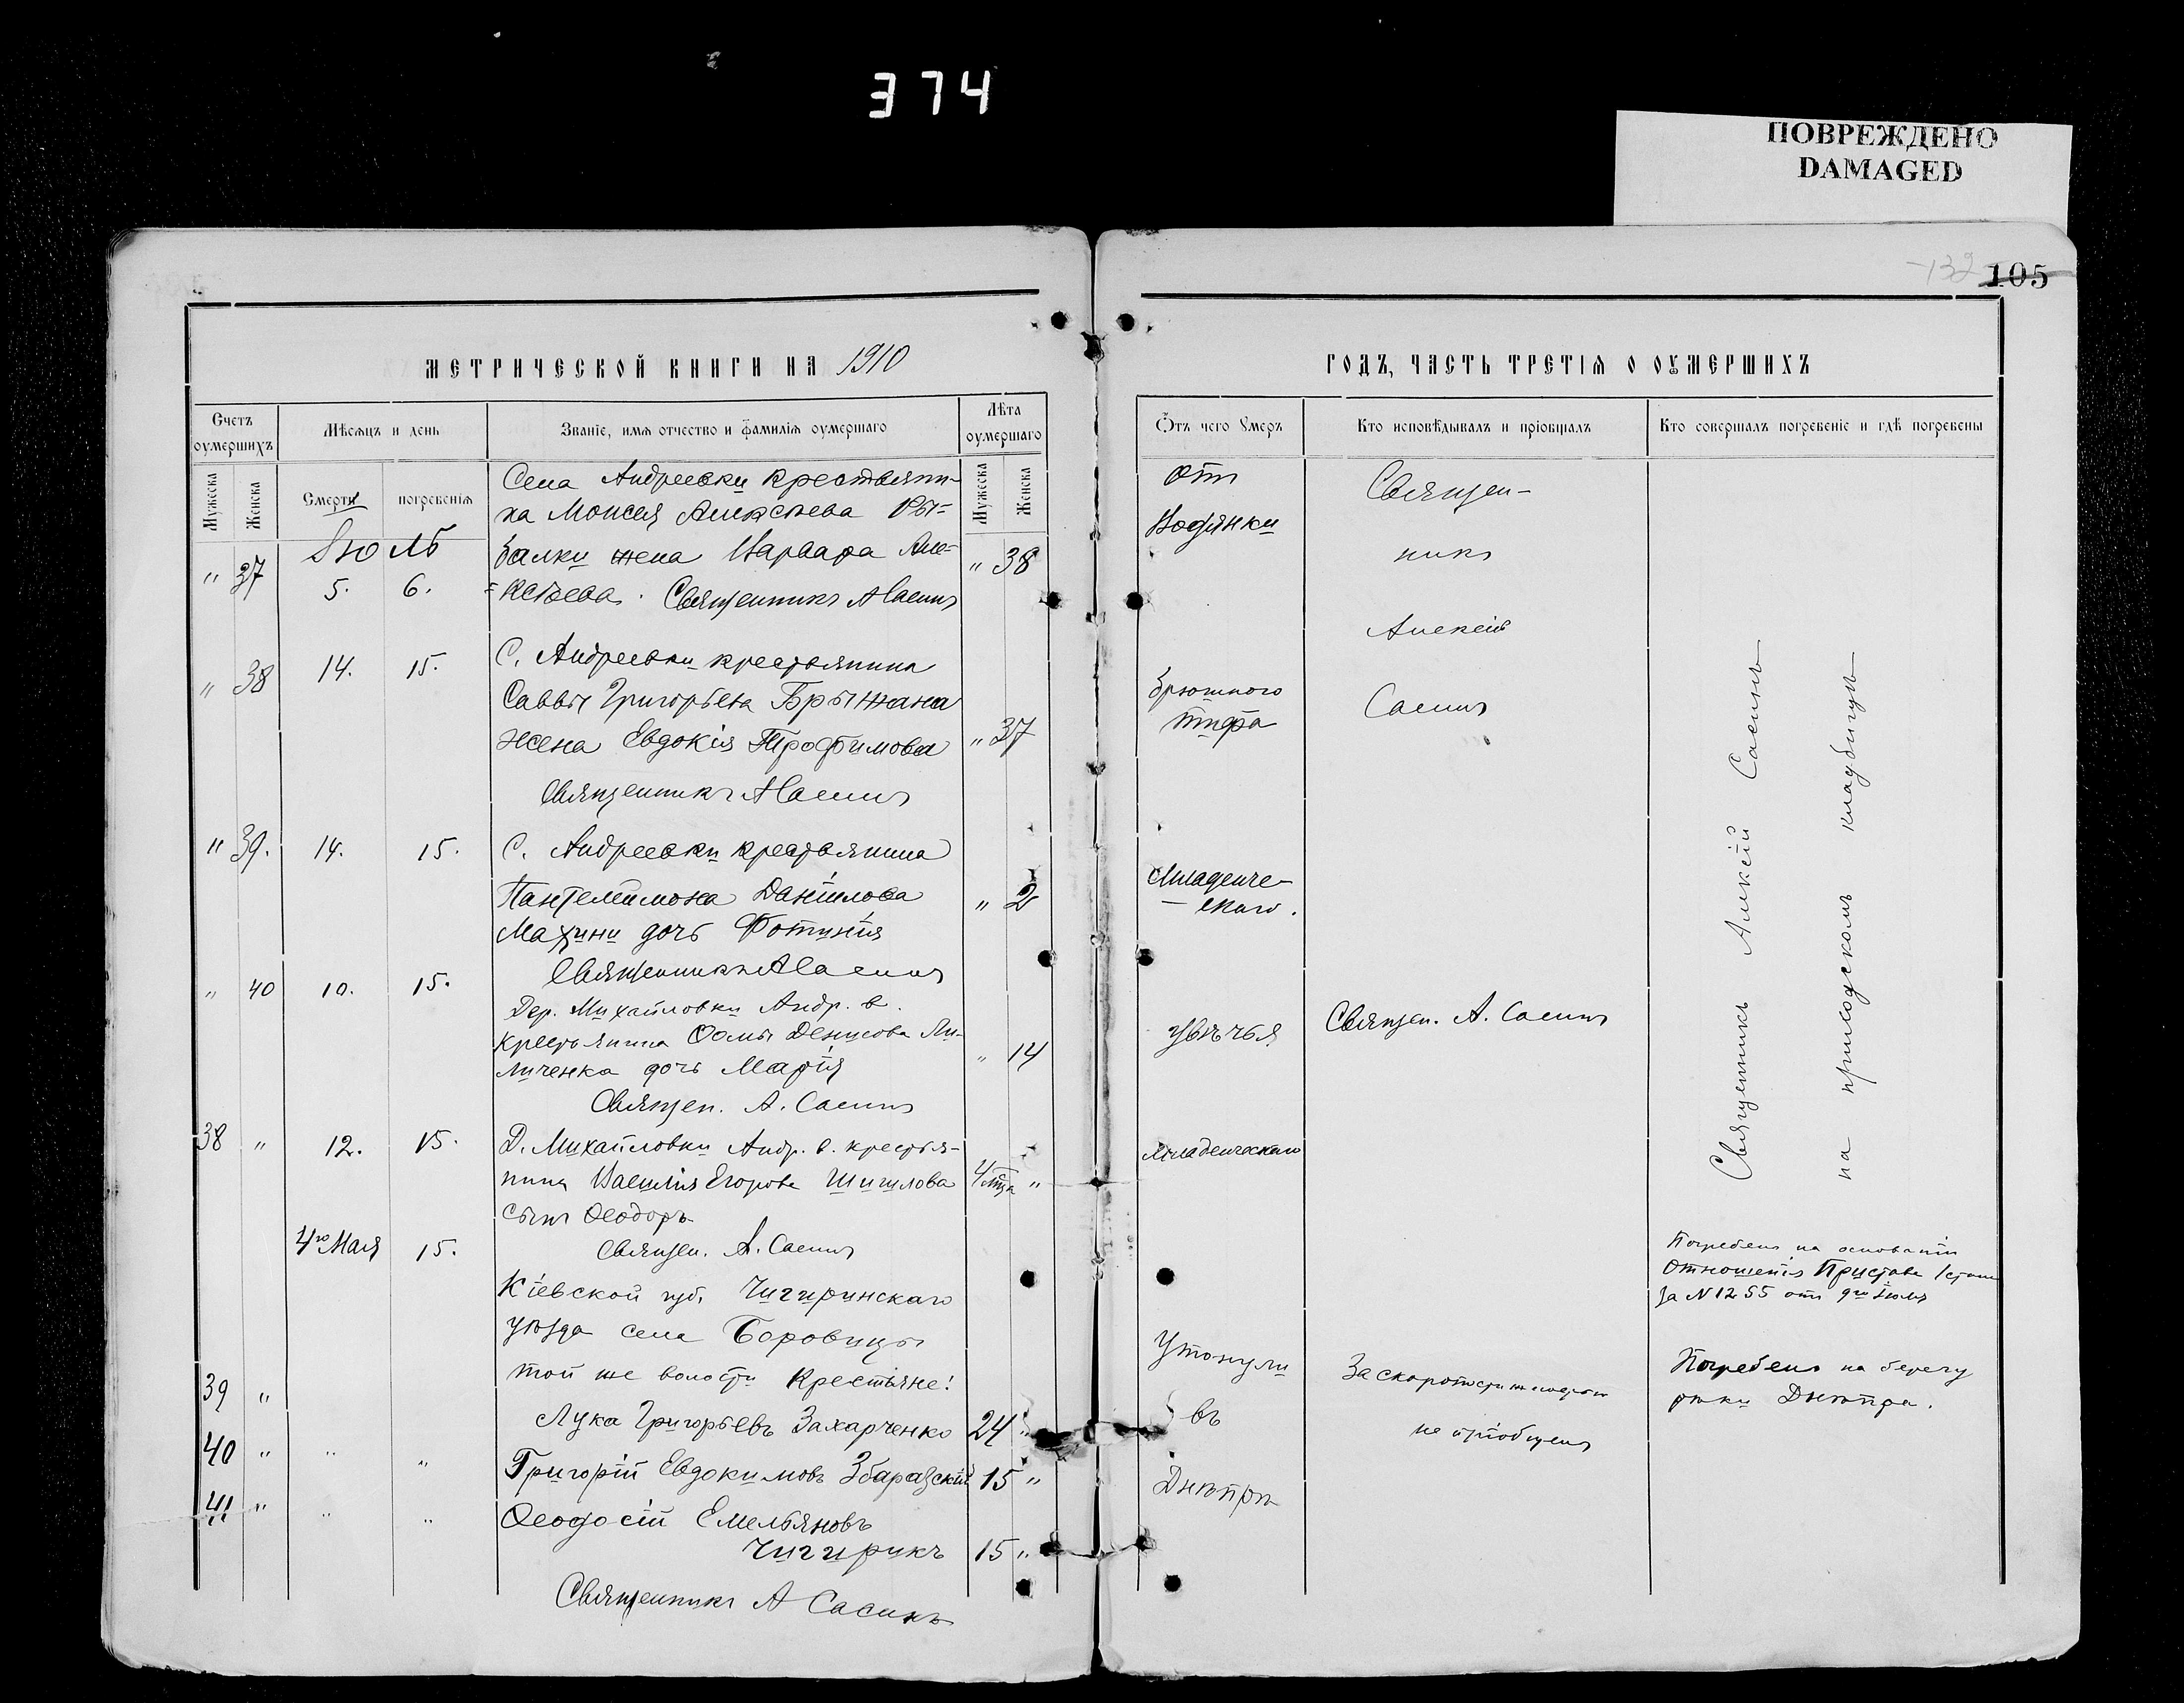 374
ПОВРЕЖДЕНО
DAMAGED
132
105
МЕТРИЧЕСКОЙ КНИГИ НА 1910
Счетъ оумершихъ
Мужеска
Женска
Мѣсяцъ и день
Смерти
погребенія
Званіе, имя отчество и фамилія оумершаго
Лѣта оумершаго
Мужеска
Женска
Іюль
Села Андреевки крестьяни-
на Моисея Алексѣева Ры-
" 37 5. 6. балки жена Варвара Але-
ксѣева. Священникъ А Сасинъ " 38
" 38 14. 15. С. Андреевки крестьянина
Саввы Григорьева Брыжана
жена Евдокія Трофимова " 37
Священникъ А Сасинъ
" 39. 14. 15. С. Андреевки крестьянина
Пантелеимона Даніилова " 2
Махини дочь Фотинія
Священникъ А Сасинъ
" 40 10. 15. Дер. Михайловки Андр. в.
крестьянина Ѳомы Денисова Ли-
личенка дочь Марія " 14
Священ. А. Сасинъ
38 " 12. 15. Д. Михайловки Андр. в. крестья-
нина Василія Егорова Шишлова 4 мца "
сынъ Ѳеодоръ
Священ. А. Сасинъ
4го Мая 15.
Кіевской губ. Чигиринскаго
уѣзда села Боровицы
той же волости крестьяне:
39 " Лука Григорьевъ Захарченко 24 "
40 " " " Григорій Евдокимовъ Збаразскій 15 "
41 " " " Ѳеодосій Емельяновъ
Чигирикъ 15 "
Священникъ А Сасинъ
ГОДЪ, ЧАСТЬ ТРЕТІЯ О ОУМЕРШИХЪ
Отъ чего умеръ
Кто исповѣдывалъ и пріобщалъ
Кто совершалъ погребеніе и гдѣ погребены
отъ
Водянки
Священ-
никъ
Алексій
Сасинъ
брюшного
тифа
Младенче-
скаго.
увѣчья
Священ. А. Сасинъ
Младенческаго
Священникъ Алексій Сасинъ
на приходскомъ кладбищѣ
Погребены на основаніи
отношенія Пристава 1 стана
за N 1255 отъ 9го Іюля
Утонули
въ
Днѣпрѣ
За скоропостижностью
не пріобщены
Погребены на берегу
рѣки Днѣпра.